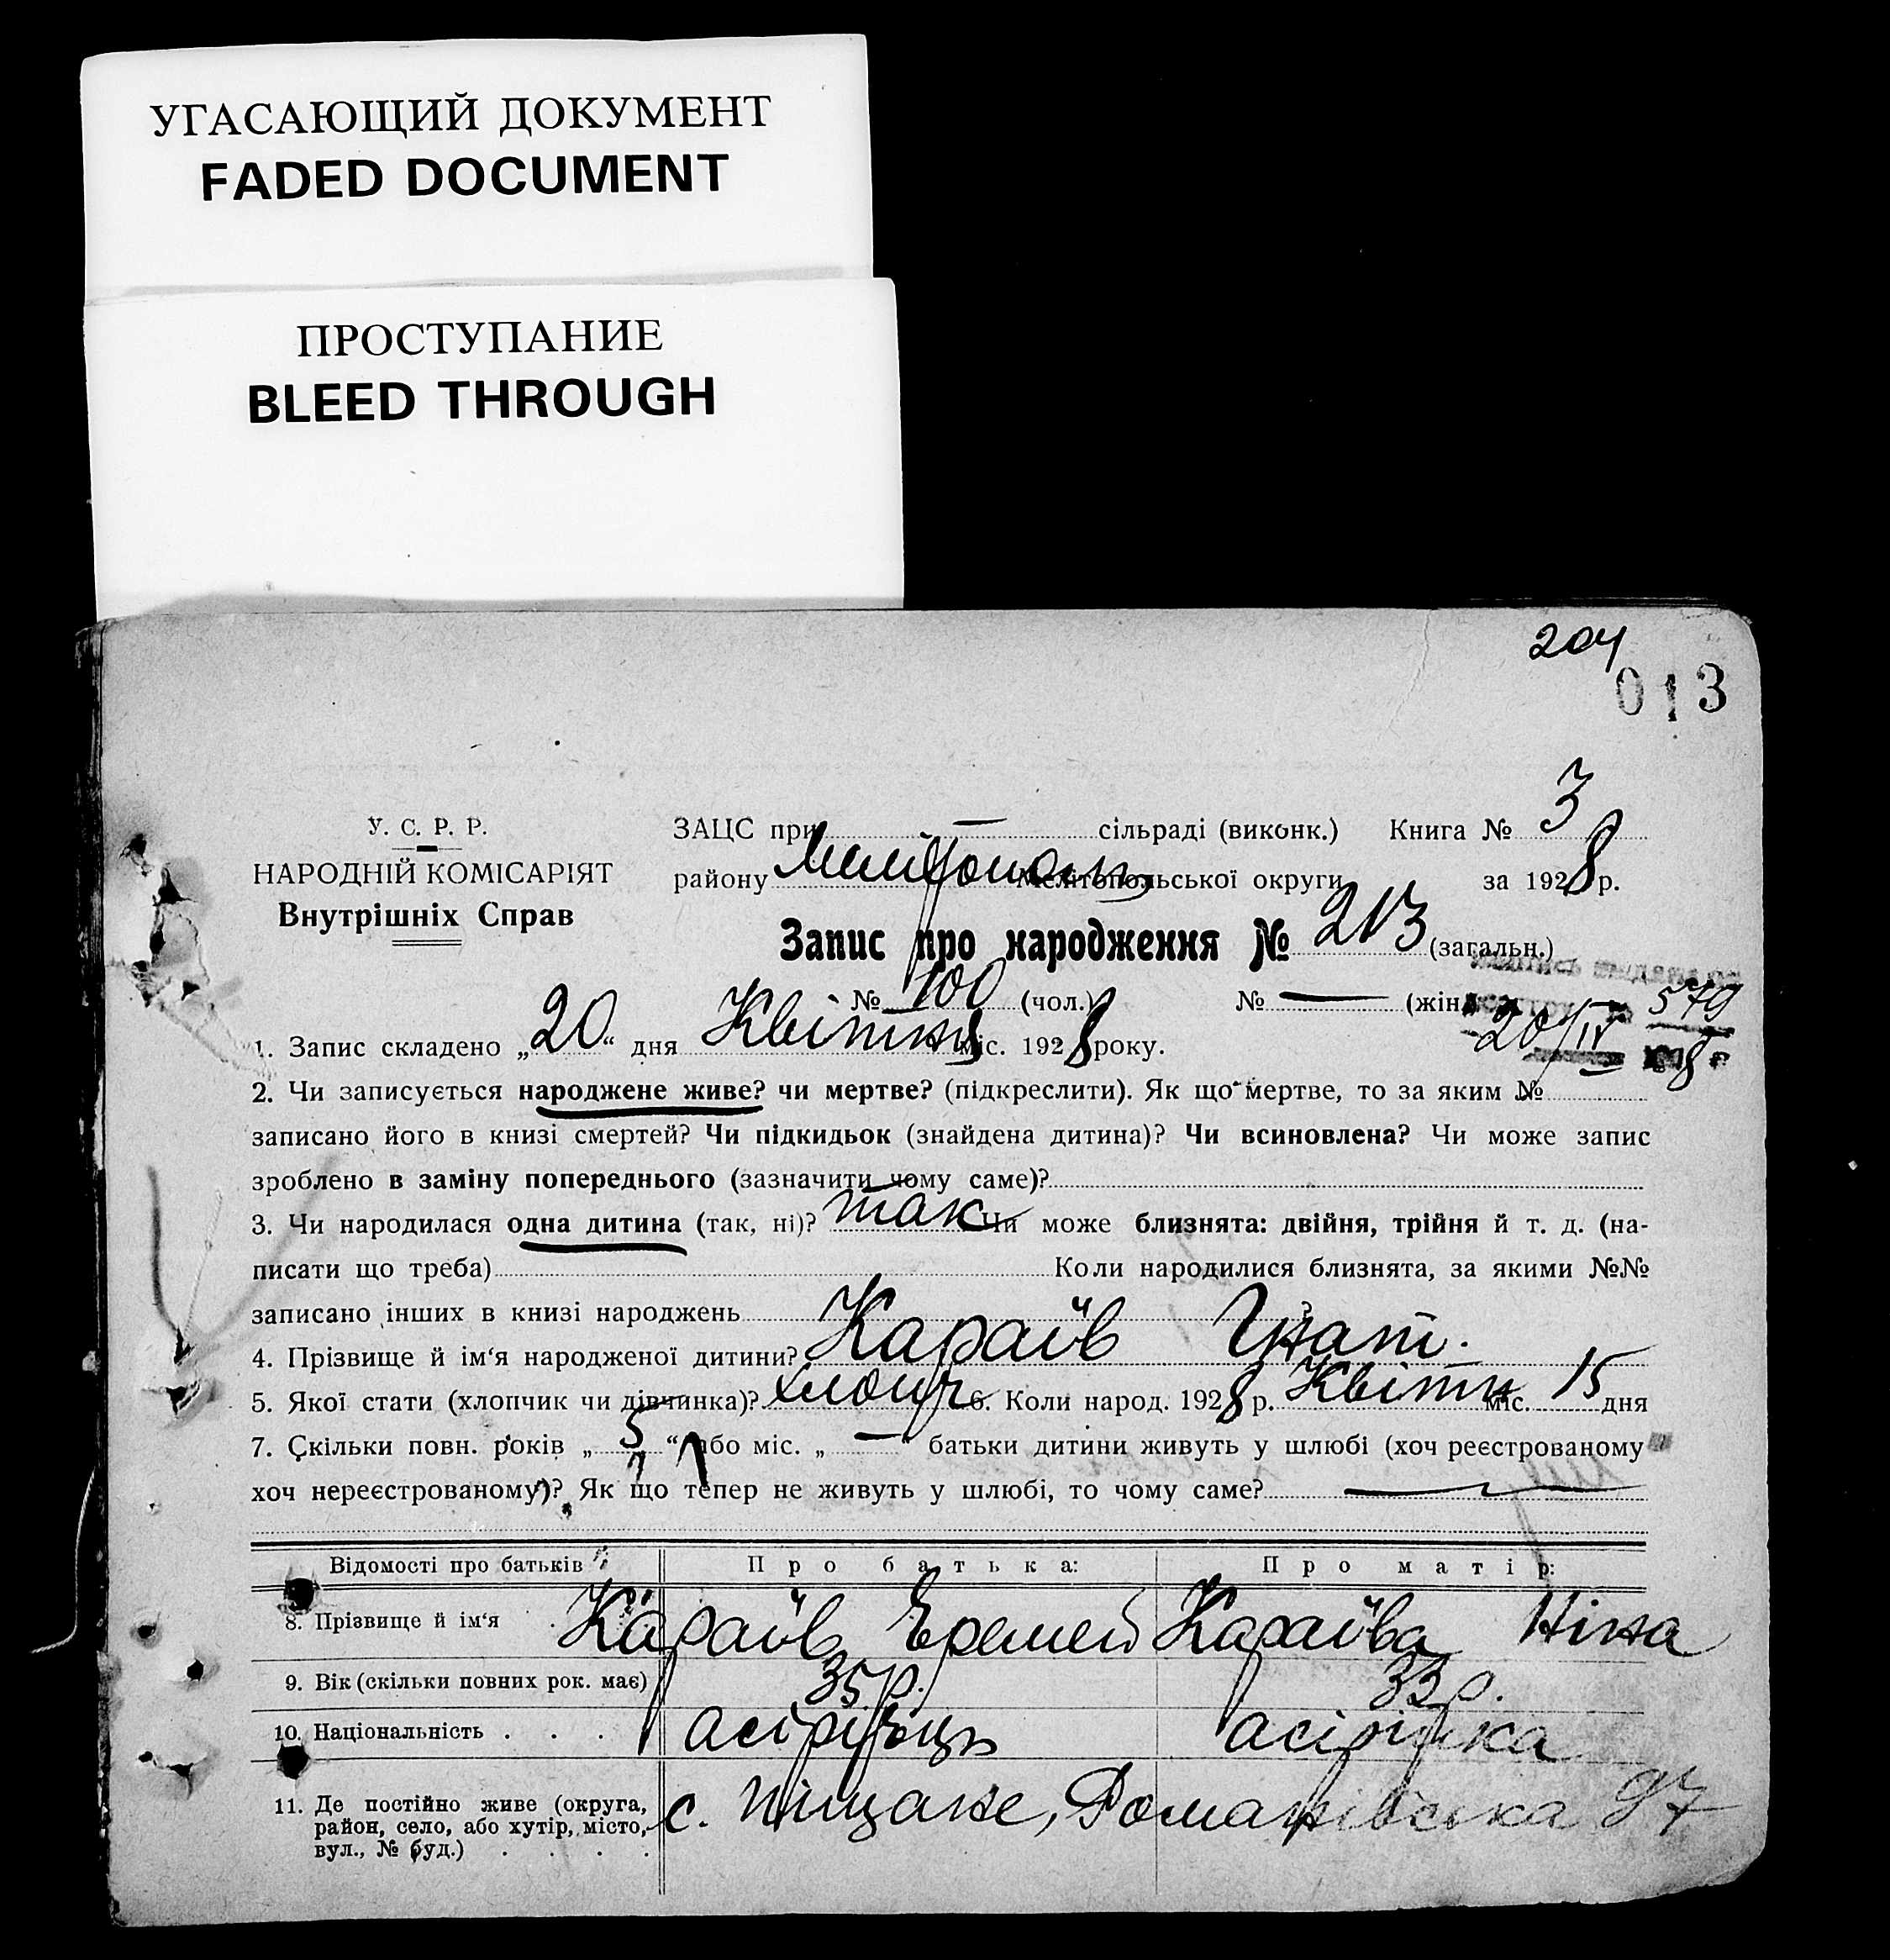 УГАСАЮЩИЙ ДОКУМЕНТ
FADED DOCUMENT
ПРОСТУПАНИЕ
BLEED THROUGH
204
013
У. С. Р. Р.
НАРОДНІЙ КОМІСАРІЯТ
Внутрішніх Справ
ЗАЦС при — сільраді (виконк.) Книга № 3
району Мелітополь Мелітопольської округи за 1928 р.
Запис про народження № 213 (загальн.)
№ 100 (чол.) № — (жін.)
20/IV 579
8
1. Запис складено „20“ дня Квітня міс. 1928 року.
2. Чи записується народжене живе? чи мертве? (підкреслити). Як що мертве, то за яким №
записано його в книзі смертей? Чи підкидьок (знайдена дитина)? Чи всиновлена? Чи може запис
зроблено в заміну попереднього (зазначити чому саме)?
3. Чи народилася одна дитина (так, ні)? так Чи може близнята: двійня, трійня й т. д. (на-
писати що треба) Коли народилися близнята, за якими №№
записано інших в книзі народжень
4. Прізвище й ім‘я народженої дитини? Караїв Гнат.
5. Якої стати (хлопчик чи дівчинка)? хлопч 6. Коли народ. 1928 р. Квітн міс. 15 дня
7. Скільки повн. років „5“ або міс. „—“ батьки дитини живуть у шлюбі (хоч реєстрованому
хоч нереєстрованому)? Як що тепер не живуть у шлюбі, то чому саме? —
Відомості про батьків Про батька: Про матір:
8. Прізвище й ім‘я Караїв Еремей Караїва Ніна
9. Вік (скільки повних рок. має) 35 р. 33 р.
10. Національність . . . асірієць асірійка
11. Де постійно живе (округа, район, село, або хутір, місто, вул., № буд.) . . . . с. Піщане, Романівська 97